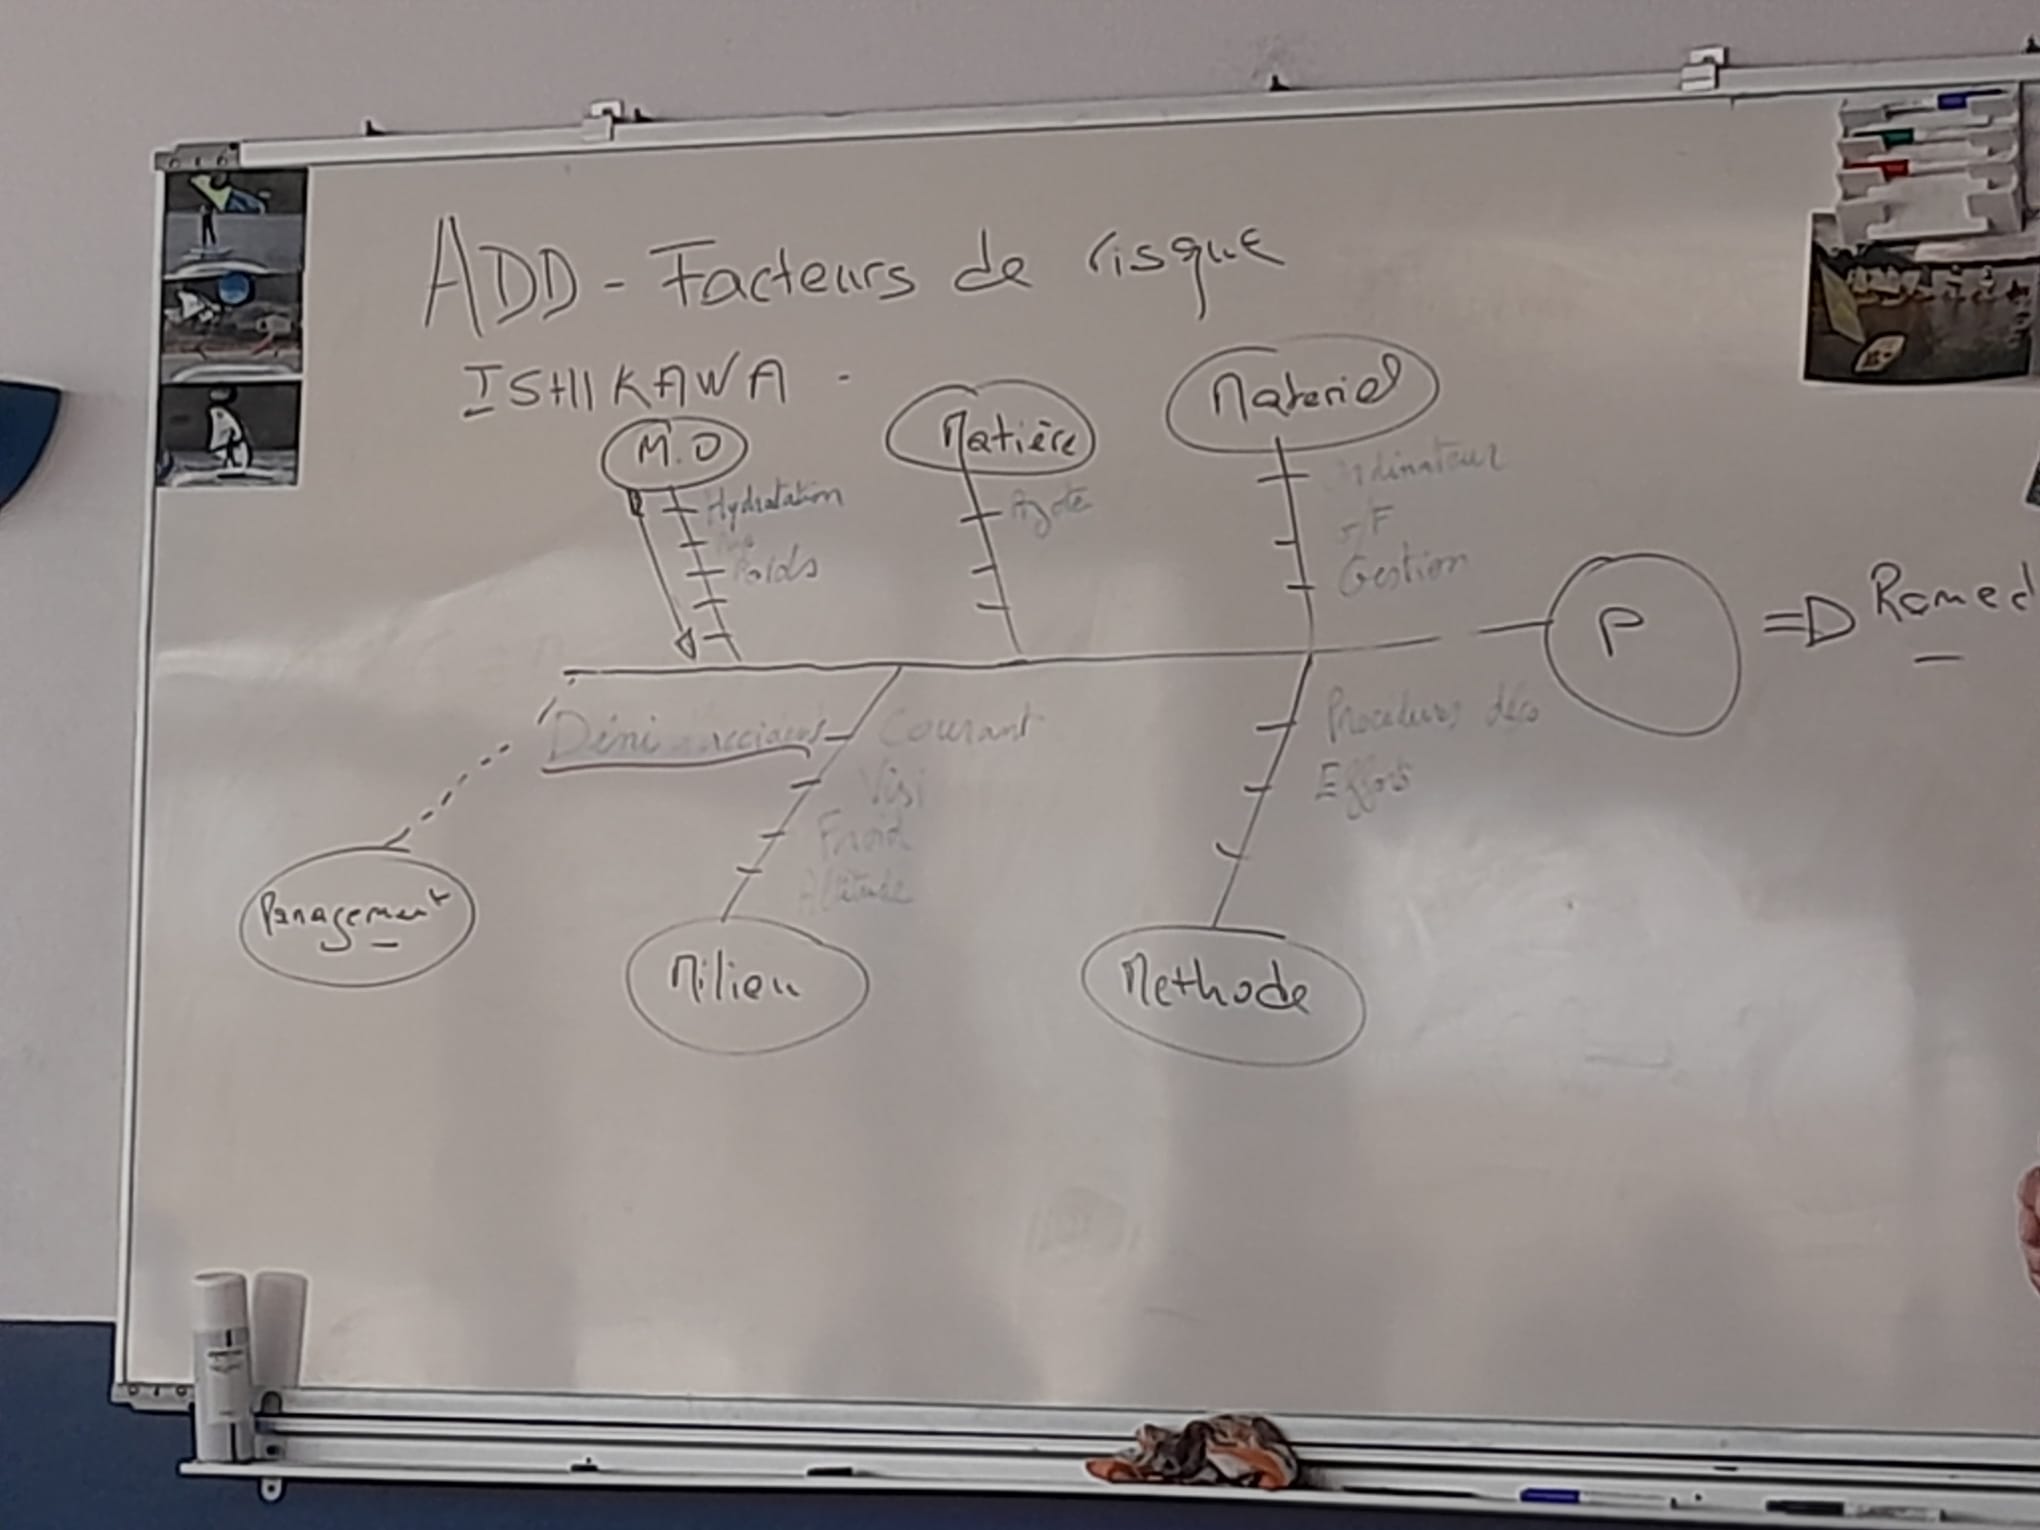 ADD - Facteurs de risque
ISHIKAWA -
M.O
Matière
Materiel
Hydratation
Poids
Azote
Ordinateur
Gestion
P
=D Remed
Déni
Courant
Visi
Froid
Altitude
Procedures deco
Efforts
Management
Milieu
Methode